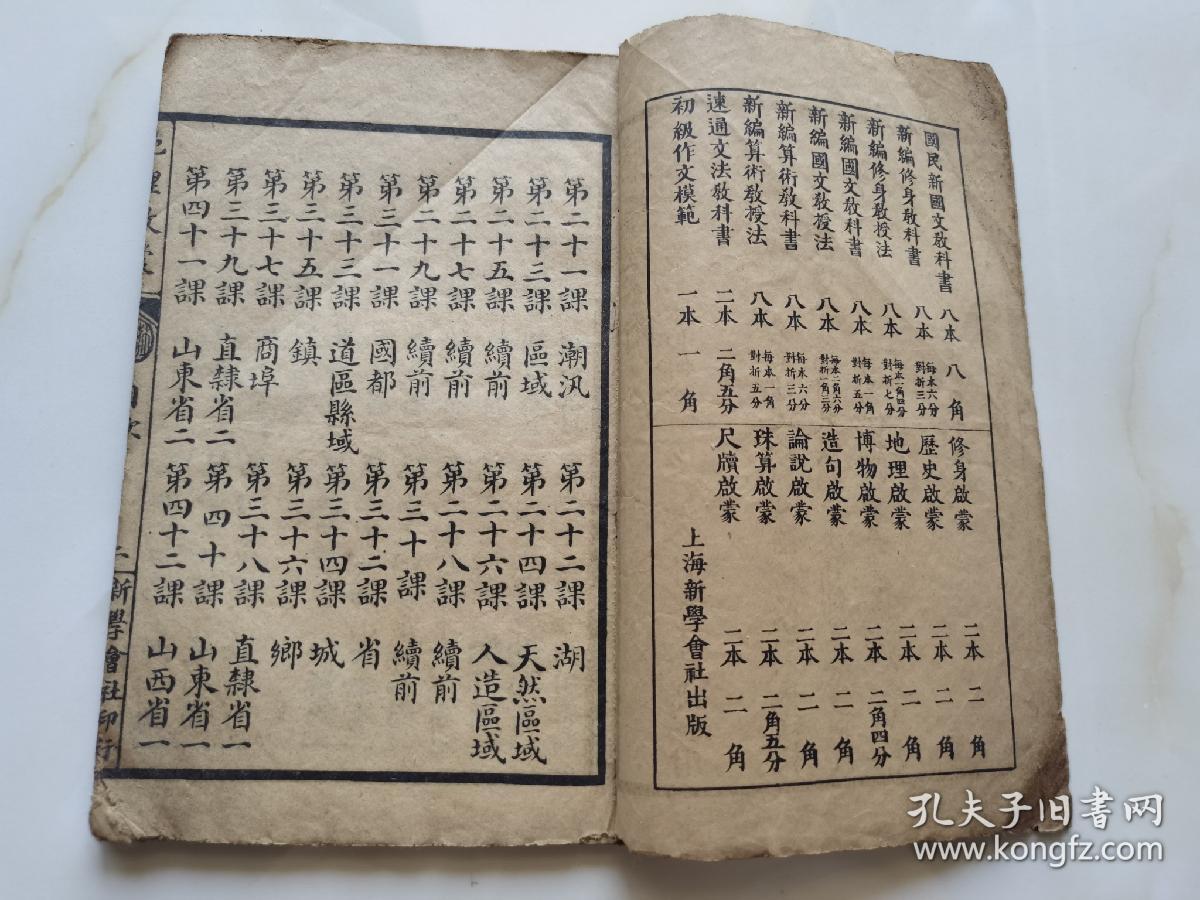 國民新國文教科書 八本 八角
新編修身教科書 八本 每本六分 對折三分
新編修身教授法 八本 每本一角四分 對折七分
新編國文教科書 八本 每本一角 對折五分
新編國文教授法 八本 每本二角六分 對折一角三分
新編算術教科書 八本 每本六分 對折三分
新編算術教授法 八本 每本一角 對折五分
速通文法教科書 二本 二角五分
初級作文模範 一本 一角
修身啟蒙 二本 二角
歷史啟蒙 二本 二角
地理啟蒙 二本 二角
博物啟蒙 二本 二角四分
造句啟蒙 二本 二角
論說啟蒙 二本 二角
珠算啟蒙 二本 二角五分
尺牘啟蒙 二本 二角
上海新學會社出版
第二十一課 潮汛 第二十二課 湖
第二十三課 區域 第二十四課 天然區域
第二十五課 續前 第二十六課 人造區域
第二十七課 續前 第二十八課 續前
第二十九課 續前 第三十課 續前
第三十一課 國都 第三十二課 省
第三十三課 道區縣域 第三十四課 城
第三十五課 鎮 第三十六課 鄉
第三十七課 商埠 第三十八課 直隸省一
第三十九課 直隸省二 第四十課 山東省一
第四十一課 山東省二 第四十二課 山西省一
目次 二 新學會社印行
孔夫子旧书网
www.kongfz.com